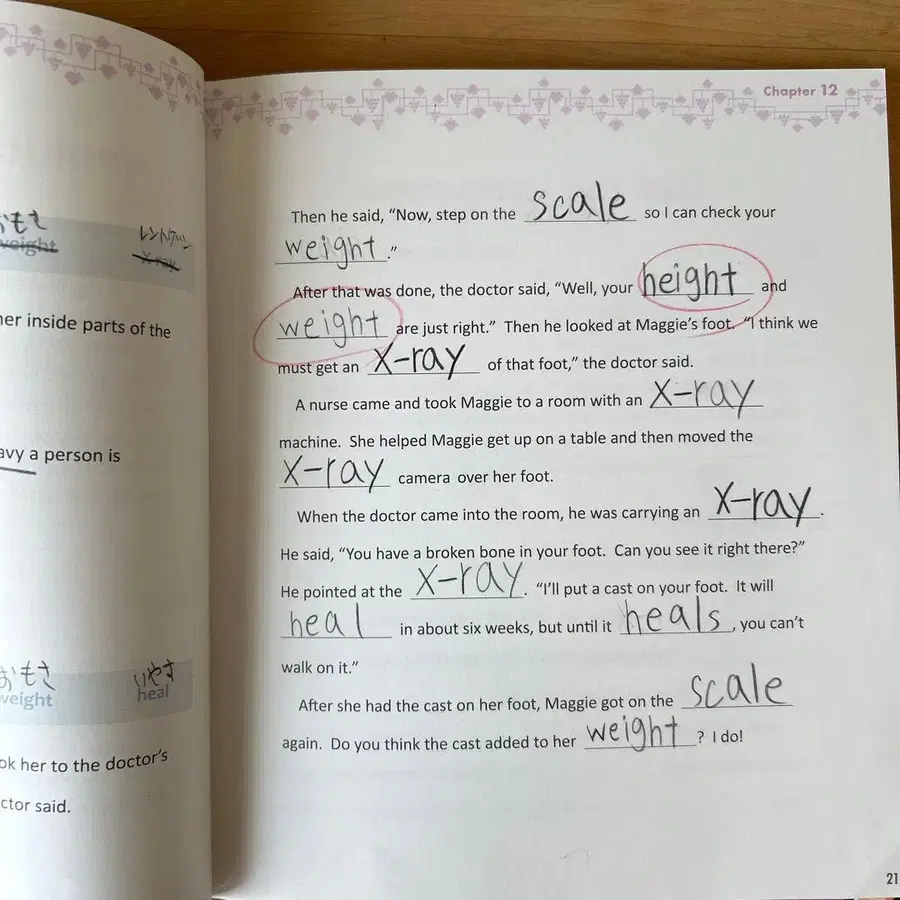 おもさ
weight
レントゲン
X-ray
her inside parts of the
avy a person is
おもさ
weight
いやす
heal
ok her to the doctor's
ctor said.
Chapter 12
Then he said, “Now, step on the scale so I can check your
weight.”
After that was done, the doctor said, “Well, your height and
weight are just right.” Then he looked at Maggie's foot. “I think we
must get an X-ray of that foot,” the doctor said.
A nurse came and took Maggie to a room with an X-ray
machine. She helped Maggie get up on a table and then moved the
X-ray camera over her foot.
When the doctor came into the room, he was carrying an X-ray.
He said, “You have a broken bone in your foot. Can you see it right there?”
He pointed at the X-ray. “I'll put a cast on your foot. It will
heal in about six weeks, but until it heals, you can't
walk on it.”
After she had the cast on her foot, Maggie got on the scale
again. Do you think the cast added to her weight? I do!
21